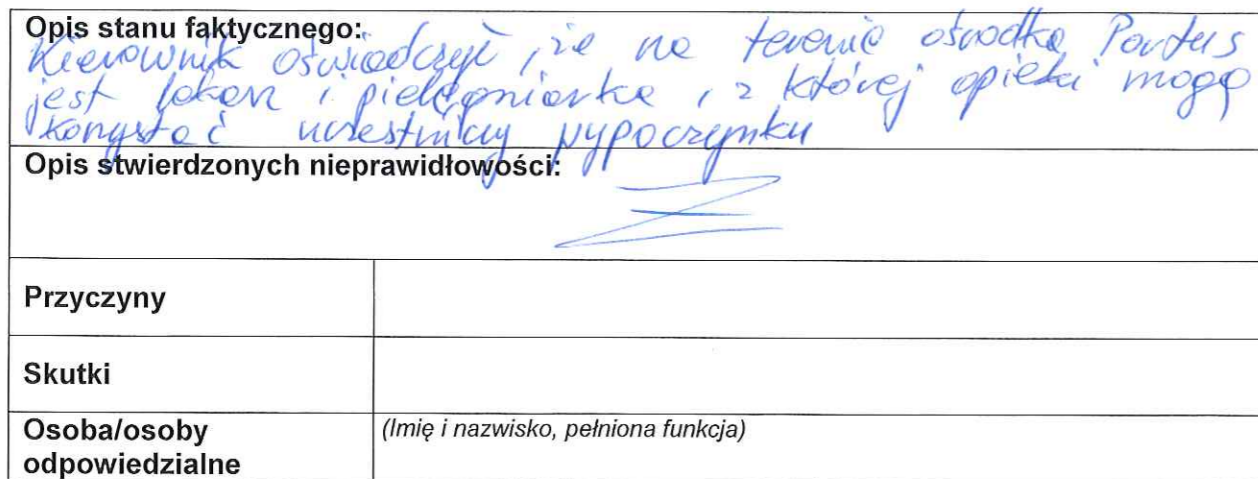 Opis stanu faktycznego:
Kierownik oświadczył, że na terenie ośrodka Portus
jest lekarz i pielęgniarka, z której opieki mogą
korzystać uczestnicy wypoczynku
Opis stwierdzonych nieprawidłowości:
Przyczyny
Skutki
Osoba/osoby
odpowiedzialne
(Imię i nazwisko, pełniona funkcja)